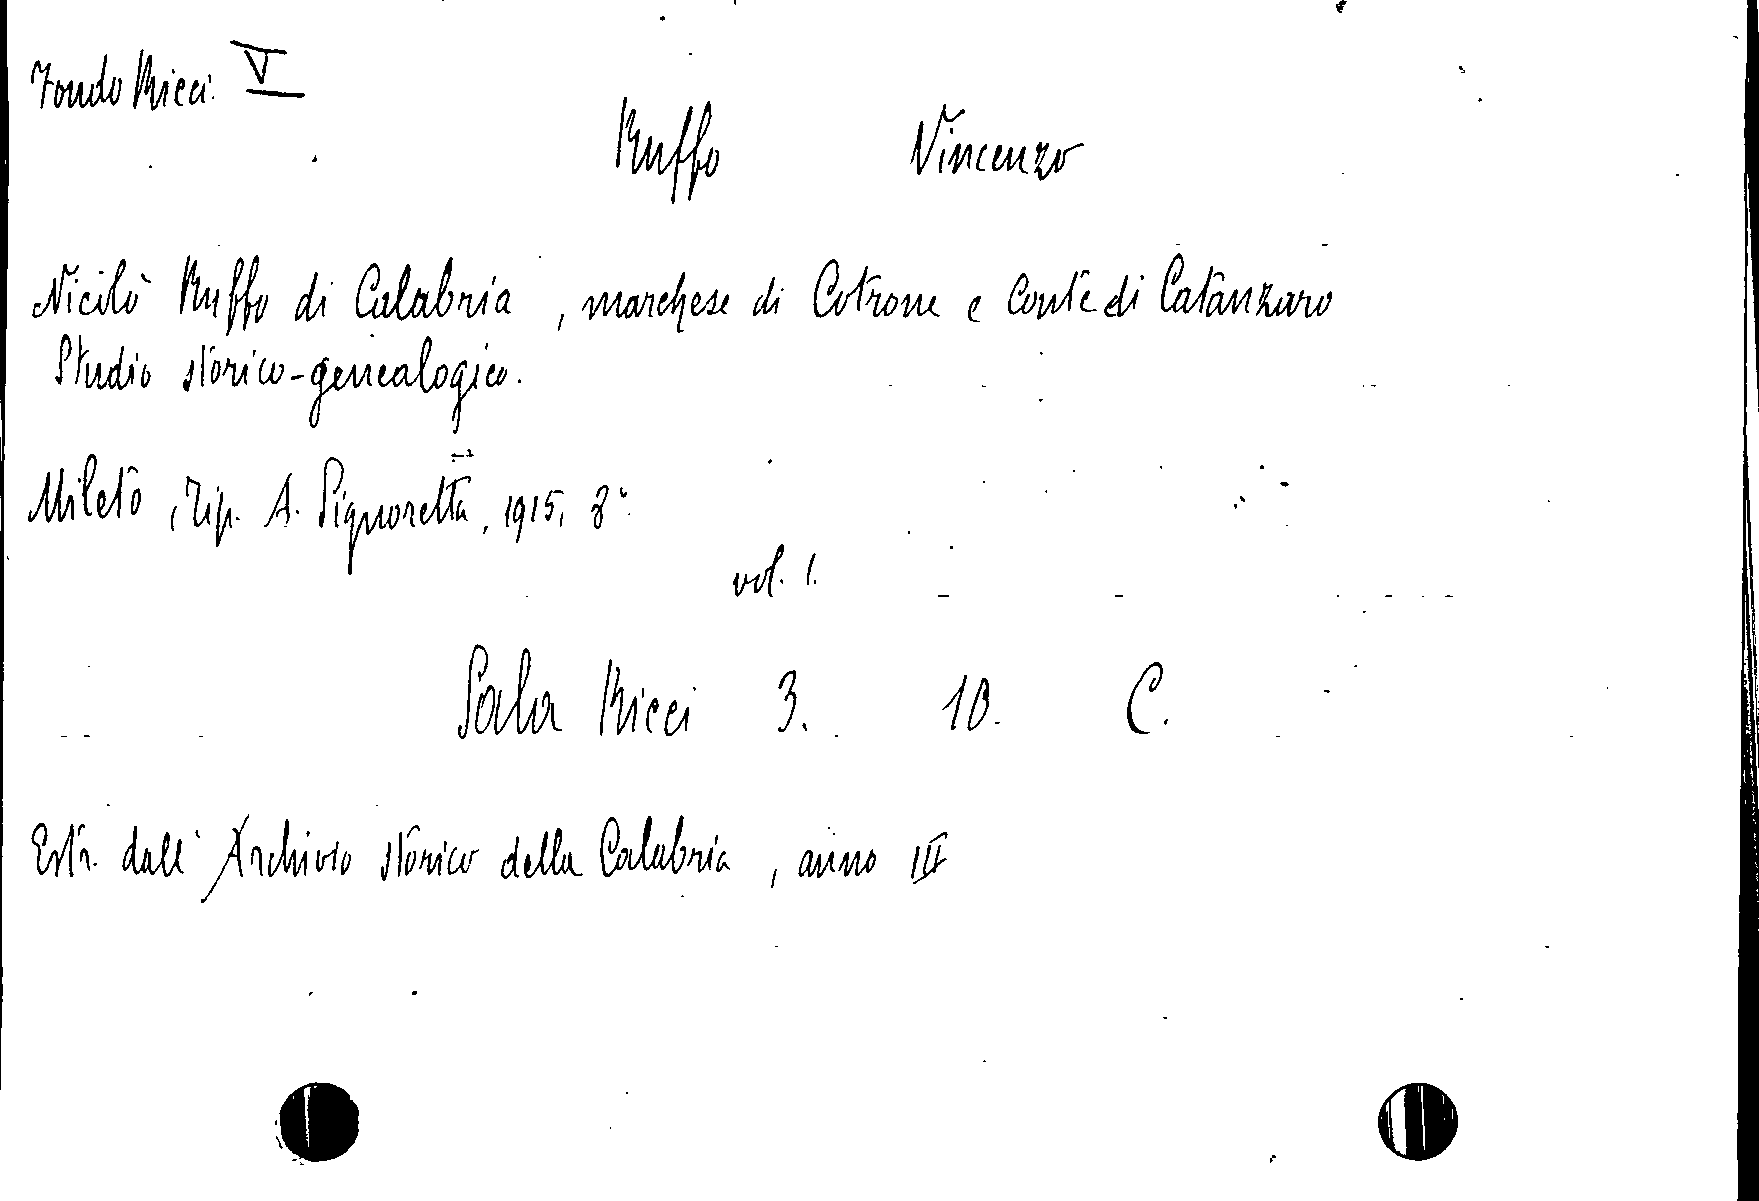 Fondo Ricci V
Ruffo Vincenzo
Nicolò Ruffo di Calabria, marchese di Cotrone e conte di Catanzaro
Studio storico-genealogico.
Mileto, Tip. A. Signoretta, 1915, 8°
vol. 1.
Sala Ricci 3. 10. C.
Estr. dall'Archivio storico della Calabria, anno III